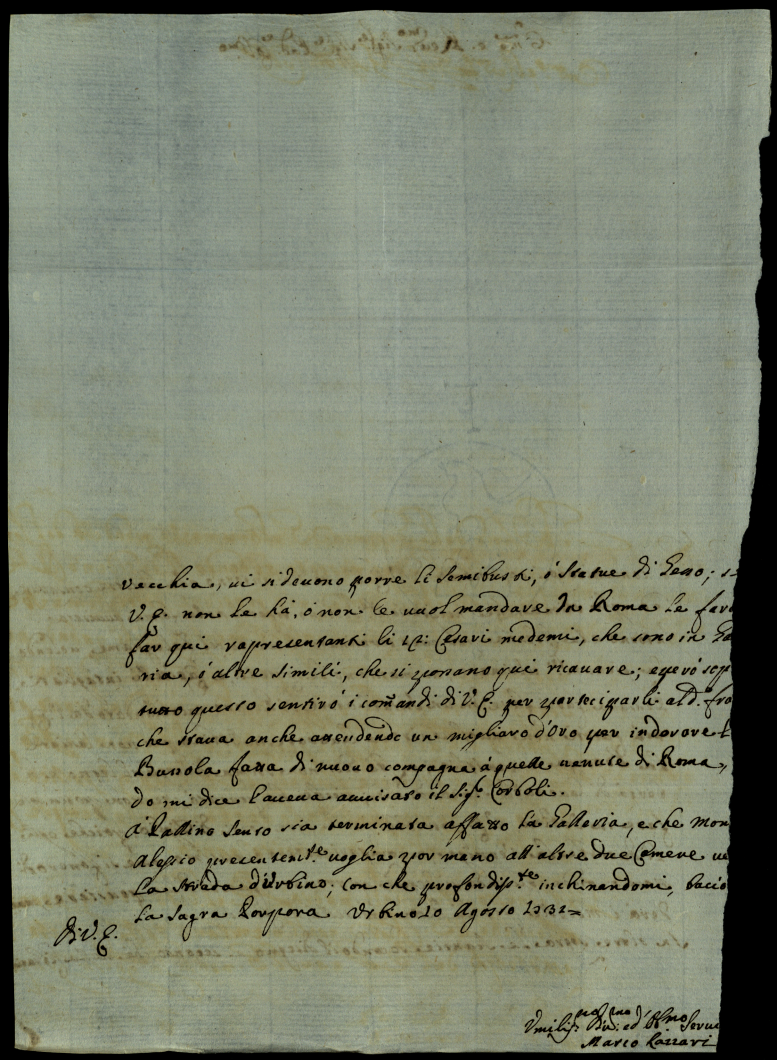 vecchia, vi si devono porre li semibusti, ó statue di Gesso; se
V. E. non le há, ó non le vuol mandare da Roma le farà
far qui rapresentanti li 12: Cesari medemi, che sono in Ga
ria, ó altre simili, che si possano qui ricavare; e però sop
tutto questo sentiró i comandi di V. E. per participarli al d.º fra
che stava anche attendendo un migliaro d'Oro per indorare l
Bussola fatta di nuovo compagna á quelle venute di Roma,
do mi dice l'aveva avvisato il Sig.r Corboli.
A Pallino sento sia terminata affatto la Galleria, e che mon
Alessio presentem.te voglia por mano all'altre due Camere ve
la strada d'Urbino; con che profondiss.te inchinandomi, bacio
la Sagra Porpora Urbino 10 Agosto 1732=
Di V. E.
Umiliss.mo Div.mo ed Obl.mo Serv
Marco Lazzari